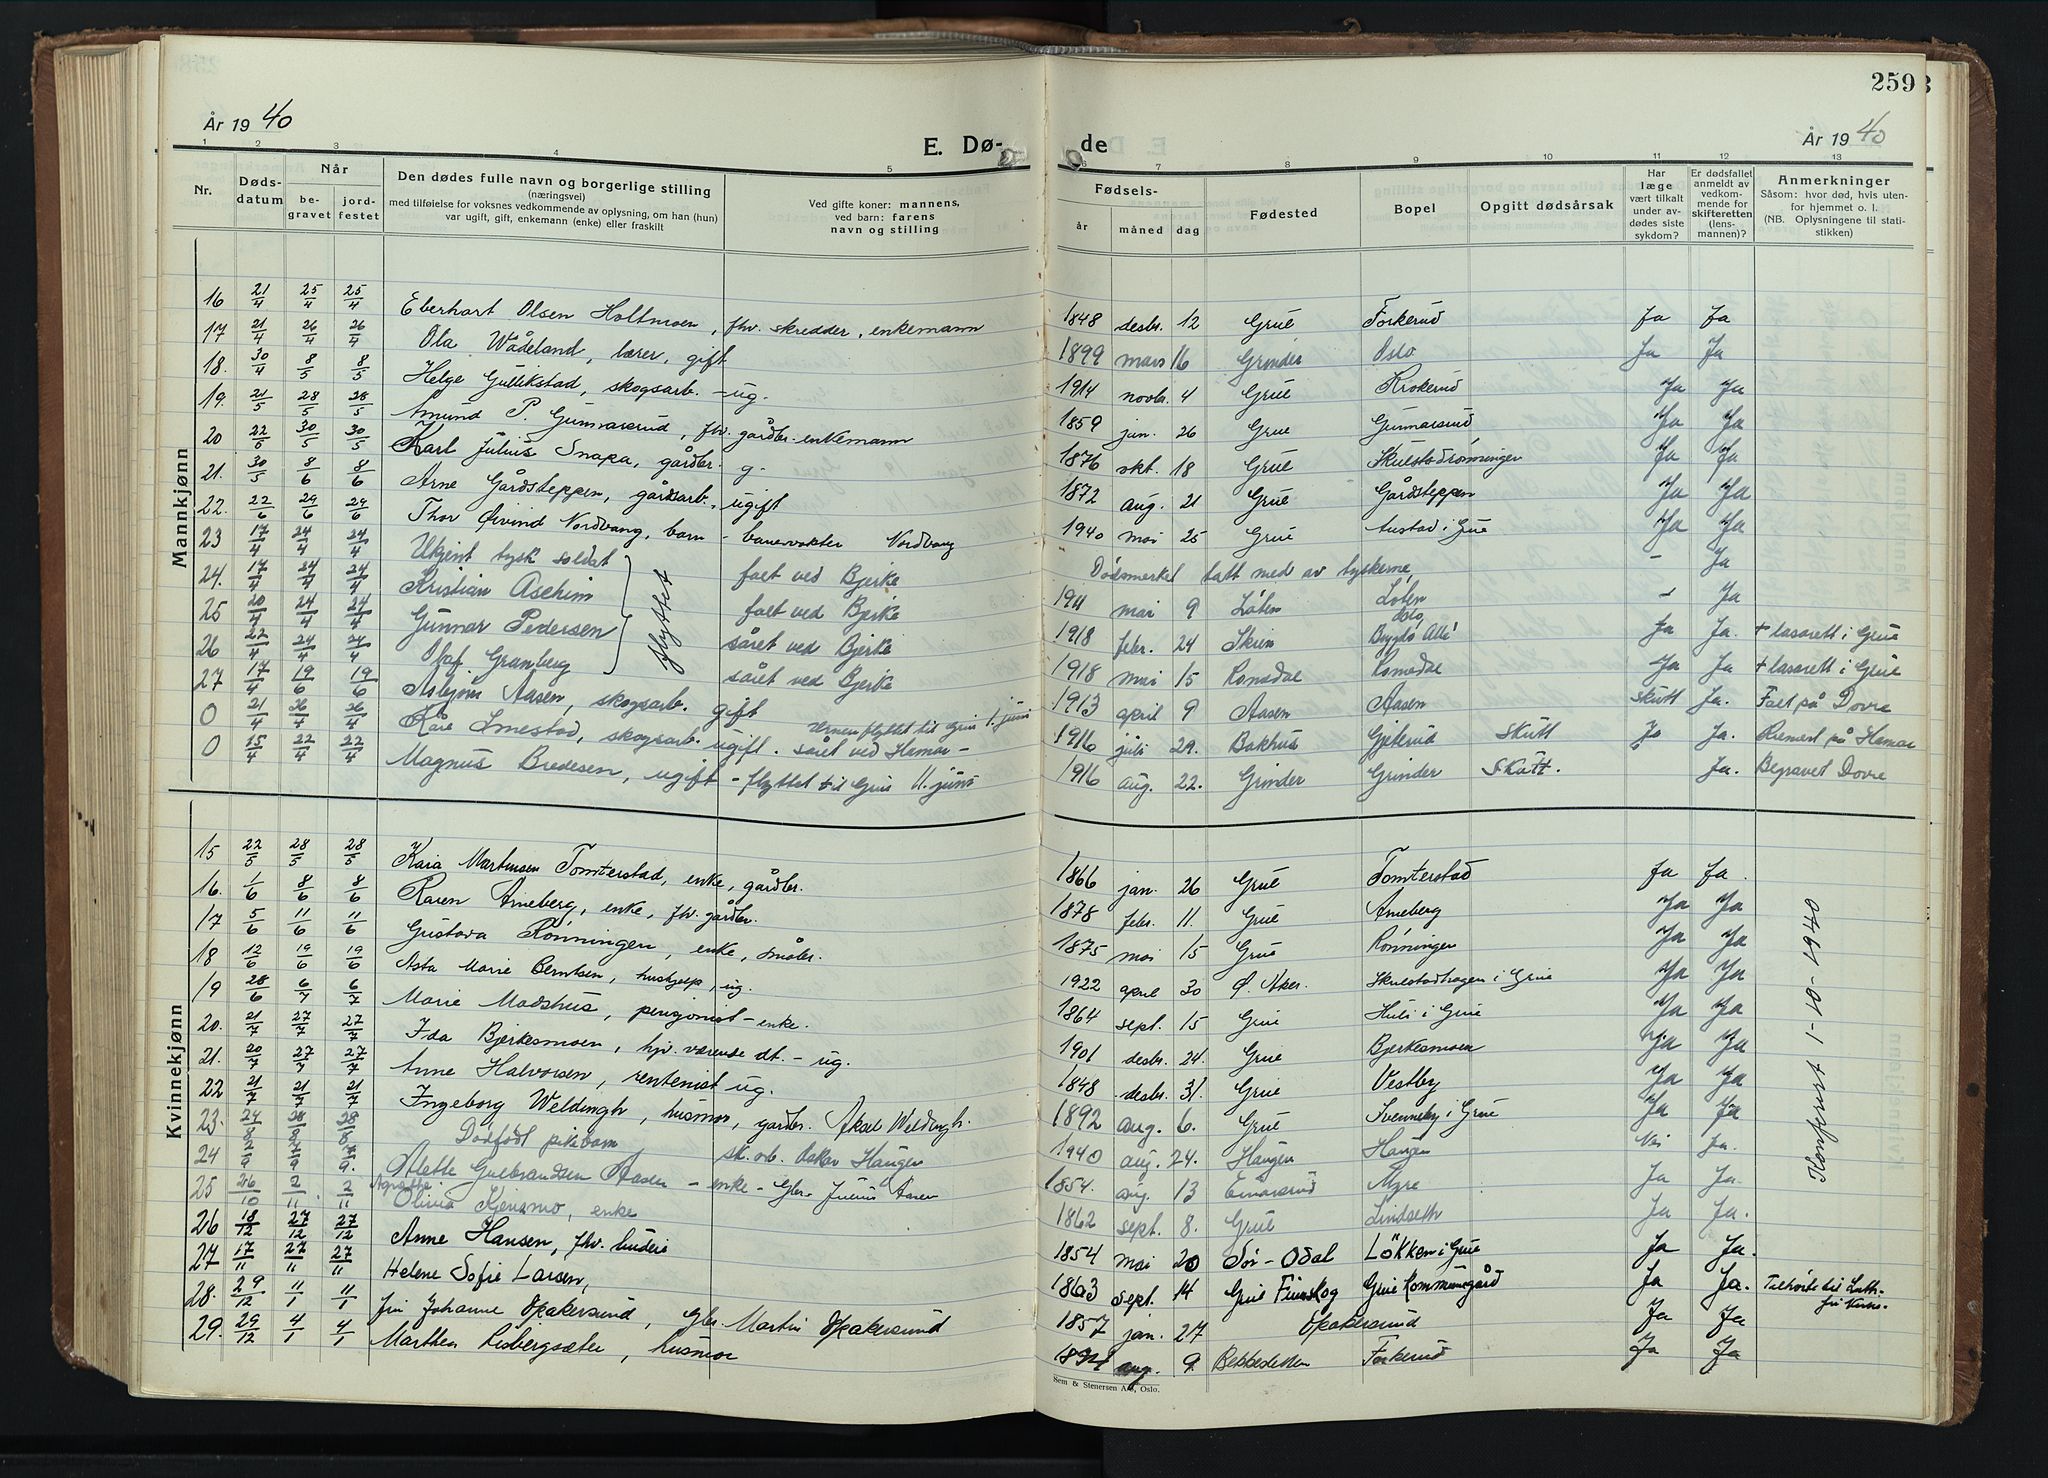 259
År 1940
E. Dø-
de
År 1940
1 2 3 4 5 6 7 8 9 10 11 12 13
Nr.
Døds-
datum
Når
be-
gravet
jord-
festet
Den dødes fulle navn og borgerlige stilling
(næringsvei)
med tilføielse for voksnes vedkommende av oplysning, om han (hun)
var ugift, gift, enkemann (enke) eller fraskilt
Ved gifte koner: mannens,
ved barn: farens
navn og stilling
Fødsels-
år måned dag
Fødested
Bopel
Opgitt dødsårsak
Har
læge
vært tilkalt
under av-
dødes siste
sykdom?
Er dødsfallet
anmeldt av
vedkom-
mende for
skifteretten
(lens-
mannen)?
Anmerkninger
Såsom: hvor død, hvis uten-
for hjemmet o. l.
(NB. Oplysningene til stati-
stikken)
Mannkjønn
16 21/4 25/4 25/4 Eberhart Olsen Holtmoen, fhv. skredder, enkemann 1848 desbr. 12 Grue Forkerud Ja Ja
17 21/4 26/4 26/4 Ola Wådeland, lærer, gift 1899 mars 16 Grinder Oslo Ja Ja
18. 30/4 8/5 8/5 Helge Gullikstad, skogsarb. - ug. 1914 novbr. 4 Grue Krokerud Ja Ja
19. 21/5 28/5 28/5 Amund P. Gunnarsrud, fhv. gårdbr. enkemann 1859 jan. 26 Grue Gunnarsrud Ja Ja
20 22/5 30/5 30/5 Karl Julius Snapa, gårdbr. g. 1876 okt. 18 Grue Skulstadrønningen Ja Ja
21. 30/5 8/6 8/6 Arne Gårdsteppen, gårdsarb., ugift 1872 aug. 21 Grue Gårdsteppen Ja Ja
22. 22/6 29/6 29/6 Thor Øivind Nordvang, barn - banevokter Nordvang 1940 mai 25 Grue Austad i Grue Ja Ja
23 17/4 24/4 24/4 Ukjent tysk soldat falt ved Bjerke Dødsmerket tatt med av tyskerne, - Ja
24. 17/4 24/4 24/4 Kristian Aschim falt ved Bjerke 1911 mai 9 Løten Løten - Ja
25 20/4 24/4 24/4 Gunnar Pedersen såret ved Bjerke 1918 febr. 24 Skien Oslo, Bygdø Allé Ja Ja. + lasarett i Grue
26 22/4 24/4 24/4 Olaf Granberg såret ved Bjerke 1918 mai 15 Romsdal Romsdal Ja Ja + lasarett i Grue
flyttet
27 17/4 19/6 19/6 Asbjørn Aasen, skogsarb. gift 1913 april 9 Aasen Aasen skutt Ja. Falt på Dovre
Urnen flyttet til Grue 1. juni
0 21/4 26/4 26/4 Kåre Smestad, skogsarb. ugift. såret ved Hamar - 1916 juli 29. Bakhus Gjeterud Skutt Ja Ja. Kremert på Hamar
0 15/4 22/4 22/4 Magnus Bredesen, ugift - flyttet til Grue 11. juni 1916 aug. 22. Grinder Grinder Skutt. Ja. Begravet Dovre
Kvinnekjønn
15 22/5 28/5 28/5 Kaia Martinsen Tomterstad, enke, gårdbr. 1866 jan. 26 Grue Tomterstad Ja Ja.
16. 1/6 8/6 8/6 Karen Arneberg, enke, fhv. gårdbr. 1878 febr. 11. Grue Arneberg Ja Ja
17 5/6 11/6 11/6 Gustava Rønningen, enke, småbr. 1875 mai 15 Grue Rønningen Ja Ja
18 12/6 19/6 19/6 Asta Marie Berntsen, hushjelp, ug. 1922 april 30 Ø. Aker. Skulstadhagen i Grue Ja Ja
19 28/6 6/7 6/7 Marie Madshus, pensjonist - enke. 1864 sept. 15 Grue Huls i Grue Ja Ja
20. 21/7 27/7 27/7 Ida Bjerkesmoen, hj. værende dt. - ug. 1901 desbr. 24. Grue Bjerkesmoen Ja Ja
21. 20/7 27/7 27/7 Anne Halvorsen, rentenist ug. 1848 desbr. 31. Grue Vestby Ja Ja
22 21/7 21/7 21/7 Ingeborg Weldingh, husmor, gårdbr. Aksel Weldingh. 1892 aug. 6. Grue Svenneby i Grue Ja Ja
23. 24/8 28/8 28/8 Dødfødt pikebarn sk. arb. Oskar Haugen 1940 aug. 24. Haugen Haugen Nei Ja.
24 2/9 7/9 7/9. Alette Gulbrandsen Aasen - enke - Gbr. Julius Aasen 1854. aug. 13 Einarsrud Myre Ja Ja.
25 26/10 2/11 2/11 Agnethe Olivia Kjensmo, enke 1862 sept. 8. Grue Lindseth Ja Ja.
26 18/12 27/12 27/12 Anne Hansen, fhv. budeie 1854 mai 20 Sør-Odal Løkken i Grue Ja Ja.
27 17/11 27/11 27/11 Helene Sofie Larsen, 1863 sept. 14 Grue Finskog Grue Kommunegård Ja Ja. Tilhørte
28. 29/12 11/1 11/1 Johanne Opakersund, Gbr. Martin Opakersund 1857 jan. 27 Opakersund Ja Ja
29. 29/12 4/1 4/1 Marthea Lisbergsæter, husmor aug. 9. Forkerud Ja Ja
Konferert 1-10-1940
Sem & Stenersen A/S, Oslo.